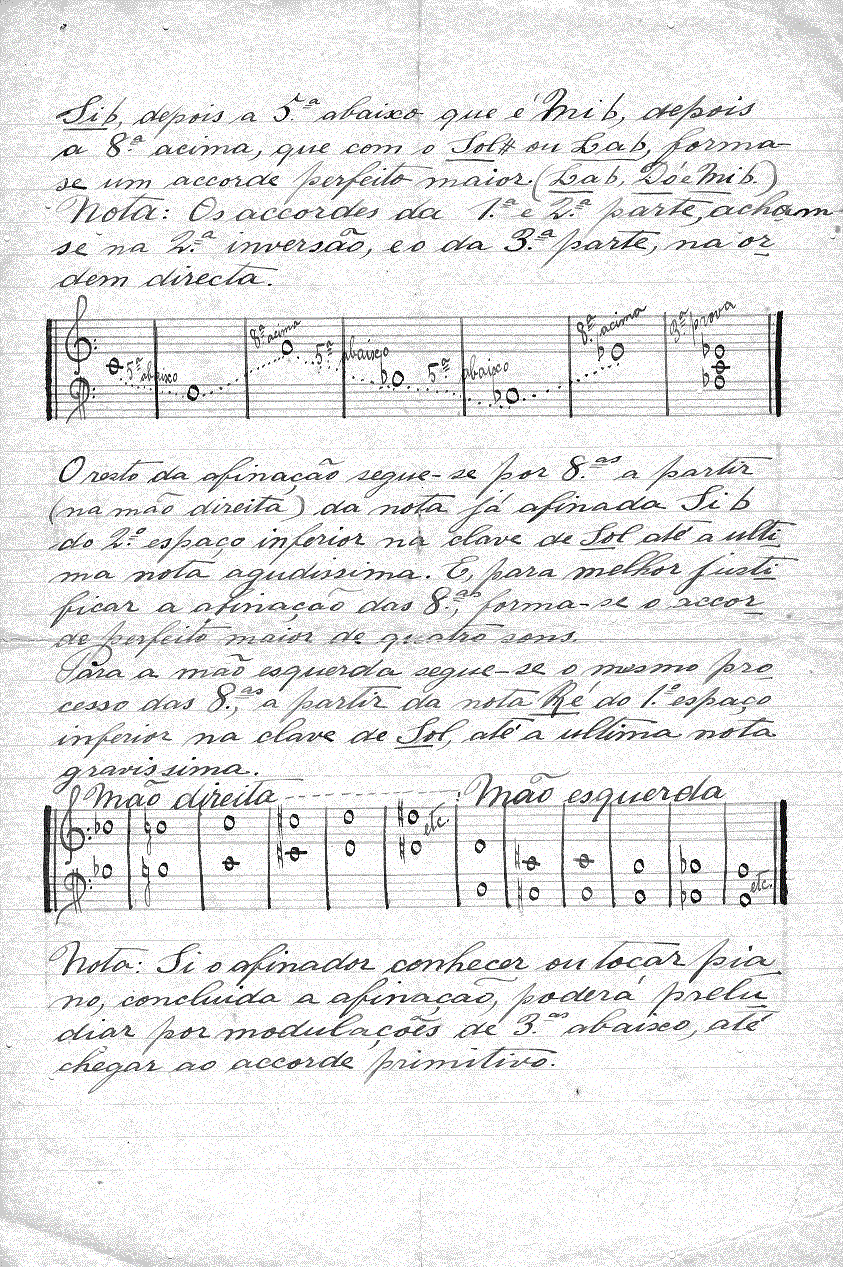 Sib, depois a 5.ª abaixo que é Mib, depois
a 8.ª acima, que com o Sol# ou Lab, forma-
se um accorde perfeito maior. (Lab, Dó e Mib.)
Nota: Os accordes da 1.ª e 2.ª parte, acham-
se na 2.ª inversão, e o da 3.ª parte, na or
dem directa.
5ª abaixo 8ª acima 5ª abaixo 5ª abaixo 8ª acima 3ª prova
O resto da afinação segue-se por 8.as a partir
(na mão direita) da nota já afinada Sib
do 2.º espaço inferior na clave de Sol até a ulti
ma nota agudissima. E, para melhor justi
ficar a afinação das 8.as, forma-se o accor
de perfeito maior de quatro sons.
Para a mão esquerda segue-se o mesmo pro
cesso das 8.as, a partir da nota Ré do 1.º espaço
inferior na clave de Sol, até a ultima nota
gravissima.
Mão direita - - - - - - - - - - : Mão esquerda
etc. etc.
Nota: Si o afinador conhecer ou tocar pia
no, concluida a afinação, poderá prelu
diar por modulações de 3.as abaixo, até
chegar ao accorde primitivo.